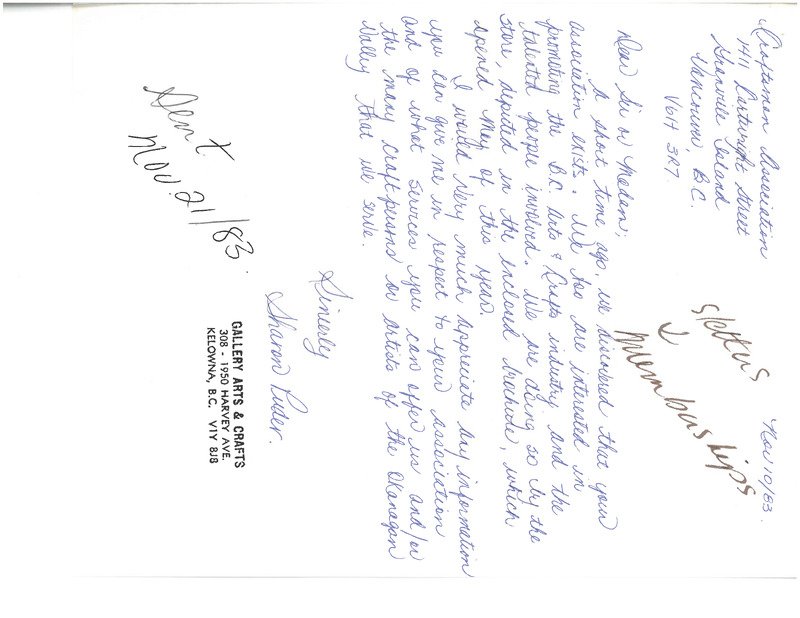 Nov 10/83.
Craftsmen Association
1411 Cartwright Street
Granville Island
Vancouver B.C.
V6H 3R7.
Dear Sir or Madam;
A short time ago, we discovered that your
association exists. We too are interested in
promoting the B.C. Arts & Crafts industry and the
talented people involved. We are doing so by the
store, depicted in the enclosed brochure, which
opened May of this year.
I would very much appreciate any information
you can give me in respect to your association
and of what services you can offer us and/or
the many craftpersons or artists of the Okanagan
Valley that we serve.
Sincerly
Sharon
GALLERY ARTS & CRAFTS
308 - 1950 HARVEY AVE.
KELOWNA, B.C. V1Y 8J8
Sent
Nov. 21/83.